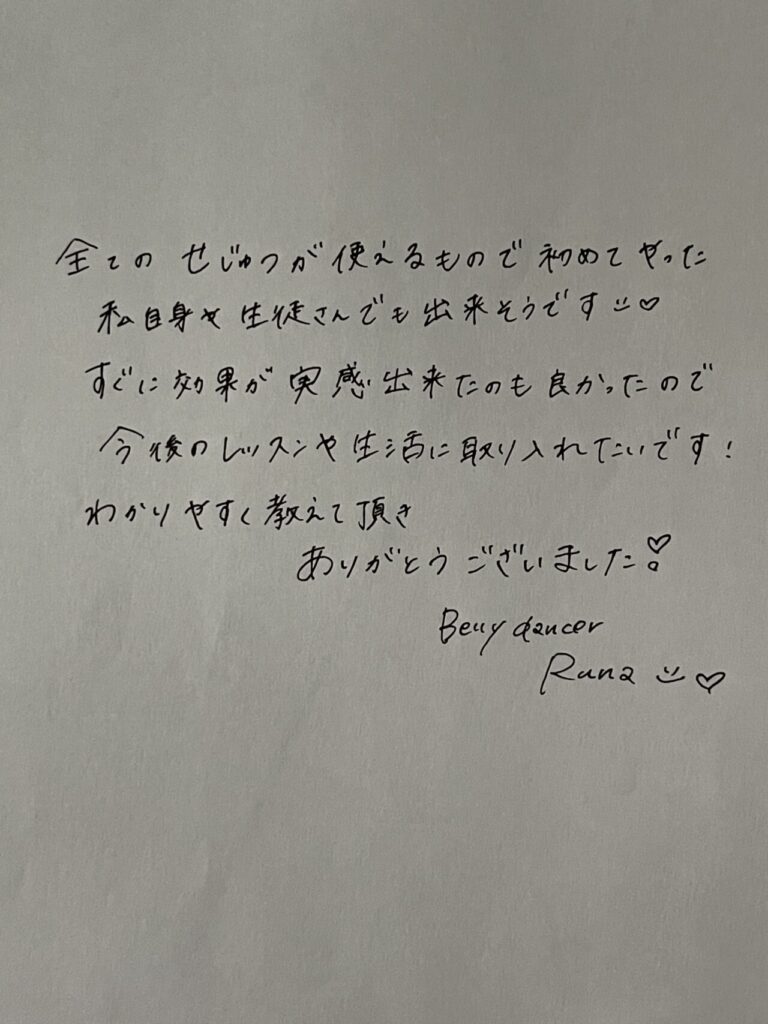 全ての せじゅつが使えるもので初めてやった
私自身や生徒さんでも出来そうです♡
すぐに効果が実感出来たのも良かったので
今後のレッスンや生活に取り入れたいです!
わかりやすく教えて頂き
ありがとうございました!
Belly dancer
Runa ♡